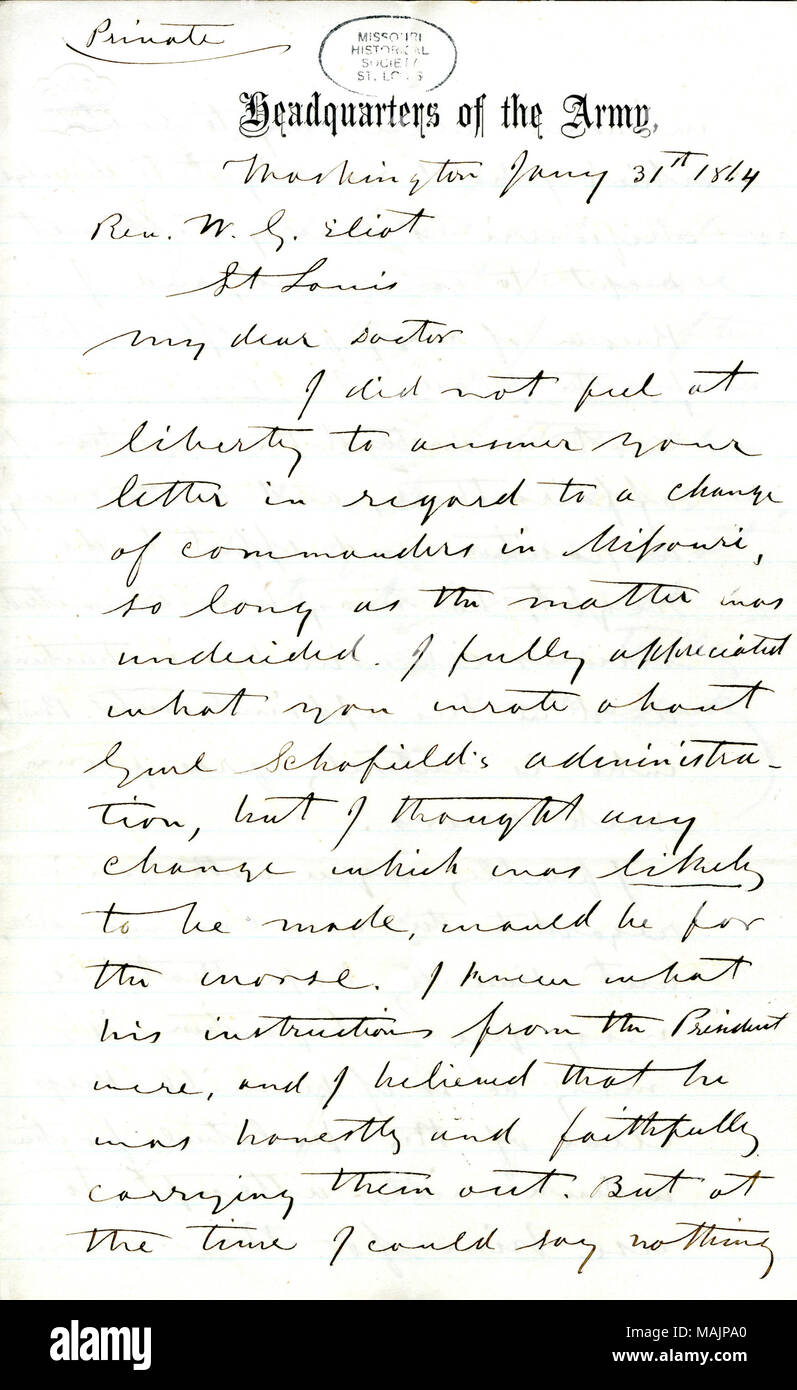 Private
MISSOURI
HISTORICAL
SOCIETY
ST. LOUIS
Headquarters of the Army,
Washington Jany 31st 1864
Rev. W. G. Eliot
St Louis
My dear Doctor
I did not feel at
liberty to answer your
letter in regard to a change
of commanders in Missouri,
so long as the matter was
undecided. I fully appreciated
what you wrote about
Genl Schofield's administra-
tion, but I thought any
change which was likely
to be made, would be for
the worse. I knew what
his instructions from the President
were, and I believed that he
was honestly and faithfully
carrying them out. But at
the time I could say nothing
alamy
Image ID: MAJPA0
www.alamy.com